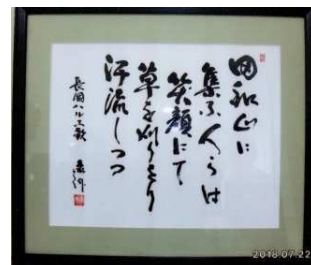 田和山に
集ふ人らは
笑顔にて
草を刈りをり
汗流しつつ
長岡ハルエ歌
2018.07.22